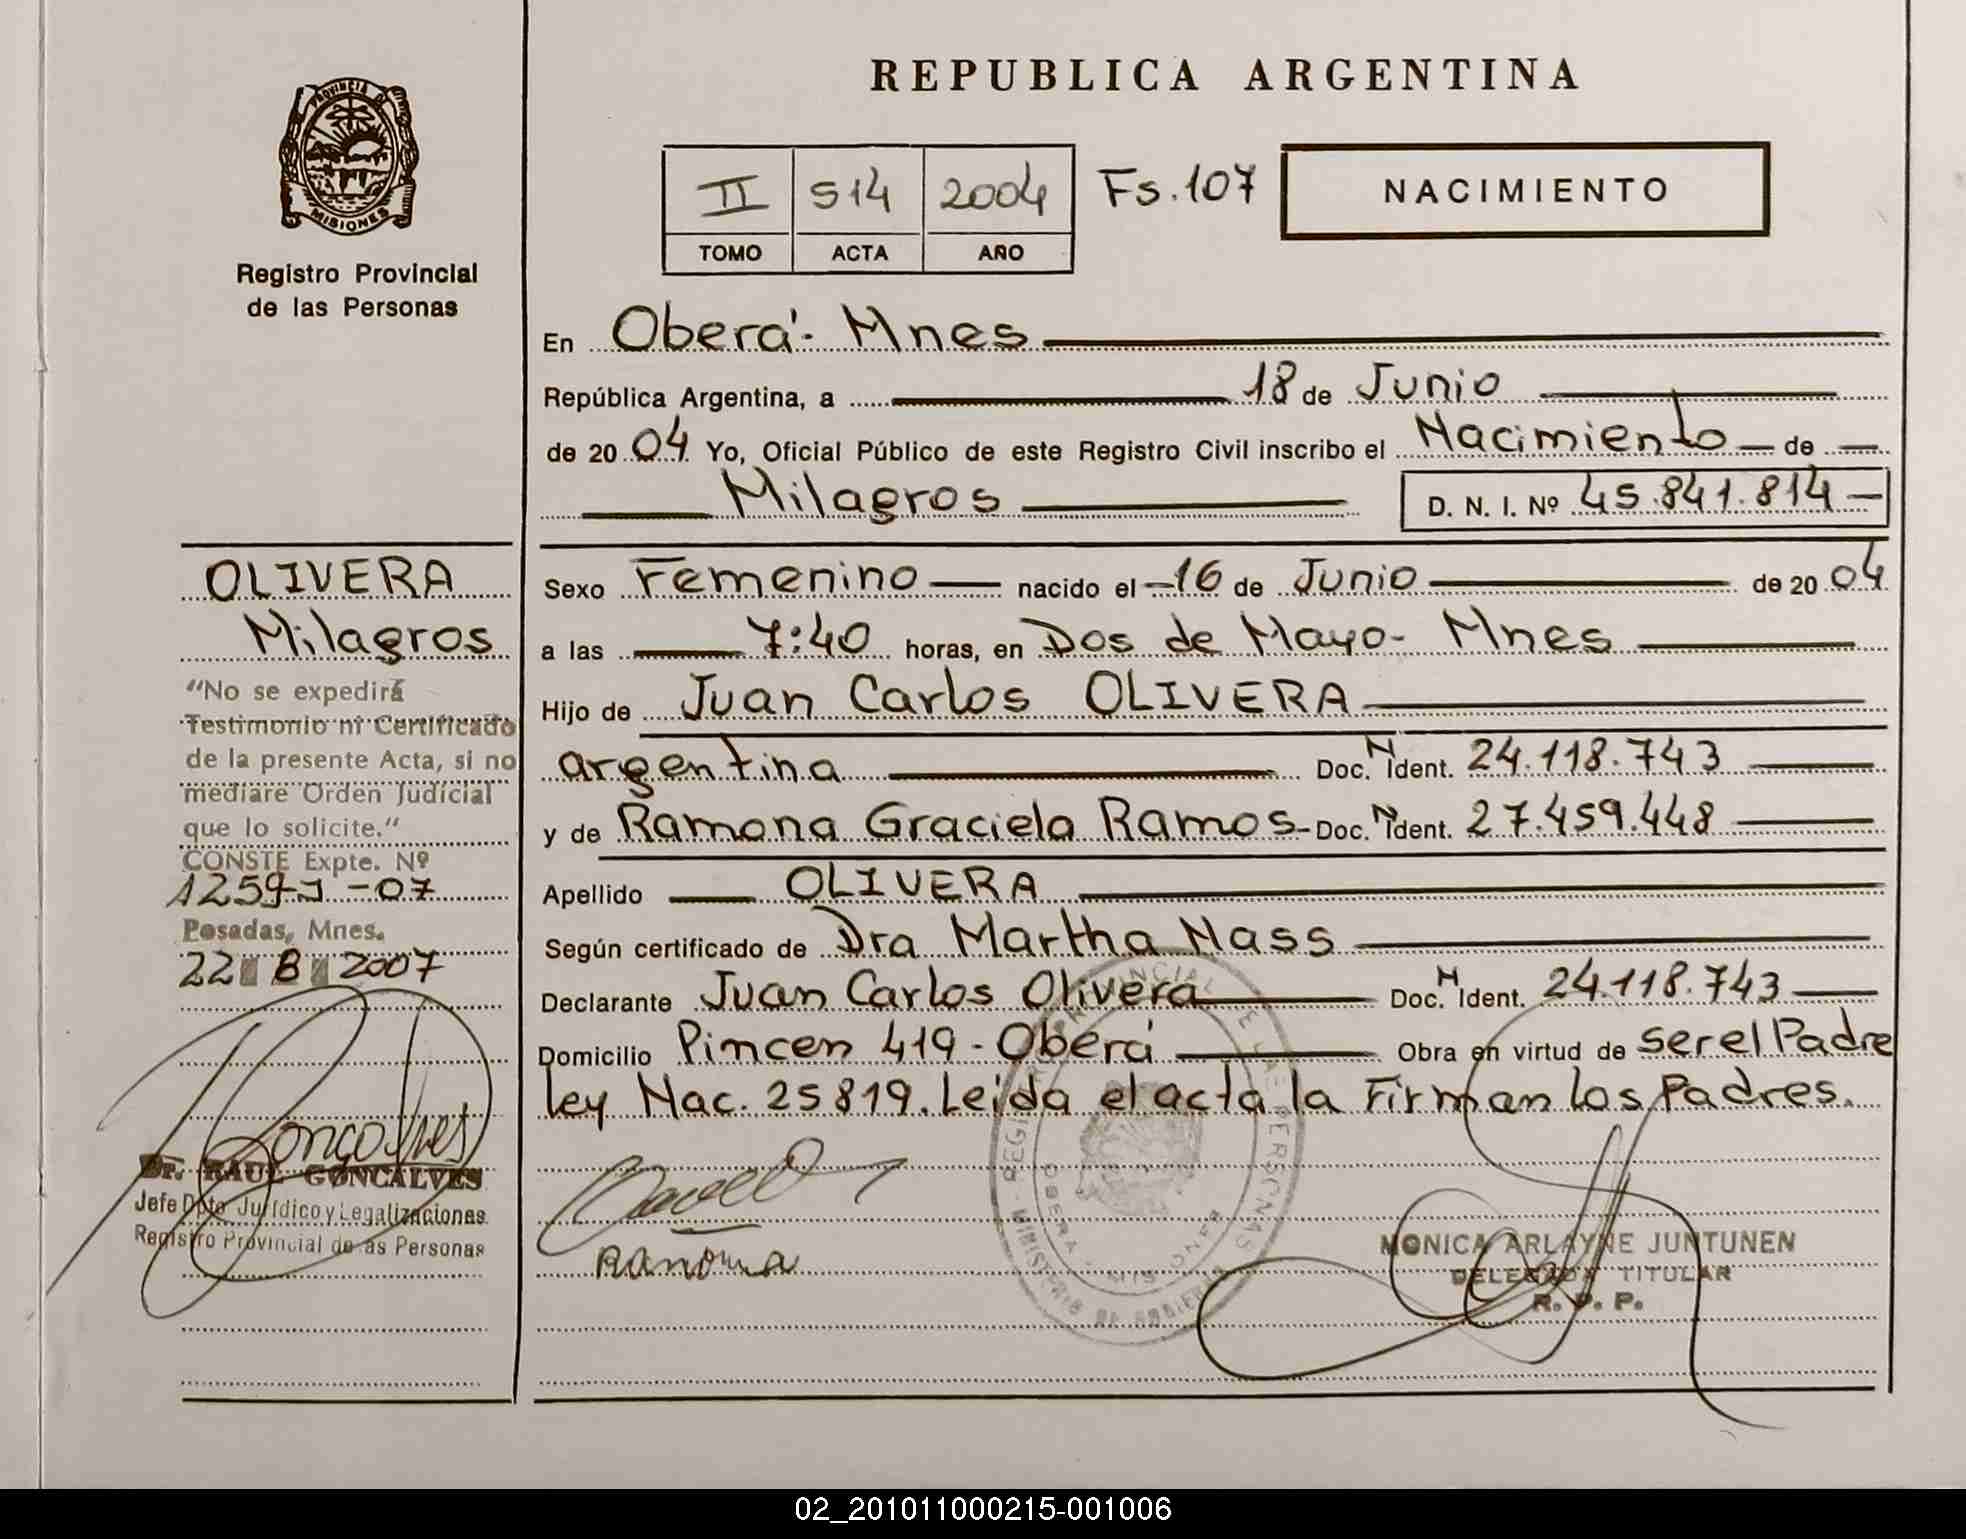 REPUBLICA ARGENTINA
PROVINCIA DE
MISIONES
Registro Provincial
de las Personas
II 514 2004 Fs.107
TOMO ACTA AÑO
NACIMIENTO
En Oberá - Mnes
República Argentina, a 18 de Junio
de 2004 Yo, Oficial Público de este Registro Civil inscribo el Nacimiento de
Milagros D. N. I. Nº 45.841.814
Sexo Femenino nacido el 16 de Junio de 2004
a las 7:40 horas, en Dos de Mayo - Mnes
Hijo de Juan Carlos OLIVERA
argentina Doc. N Ident. 24.118.743
y de Ramona Graciela Ramos - Doc. N Ident. 27.459.448
Apellido OLIVERA
Según certificado de Dra Martha Nass
Declarante Juan Carlos Olivera Doc. N Ident. 24.118.743
Domicilio Pincen 419 - Oberá Obra en virtud de ser el Padre
ley Nac. 25819. Leída el acta la Firman los Padres.
Ramona
MONICA ARLAYNE JUNTUNEN
DELEGADA TITULAR
R. P. P.
OLIVERA
Milagros
"No se expedirá
Testimonio ni Certificado
de la presente Acta, si no
mediare Orden Judicial
que lo solicite."
CONSTE Expte. Nº
1259-J-07
Posadas, Mnes.
22 8 2007
Dr. RAUL GONCALVES
Jefe Dpto Jurídico y Legalizaciones
Registro Provincial de las Personas
02_201011000215-001006